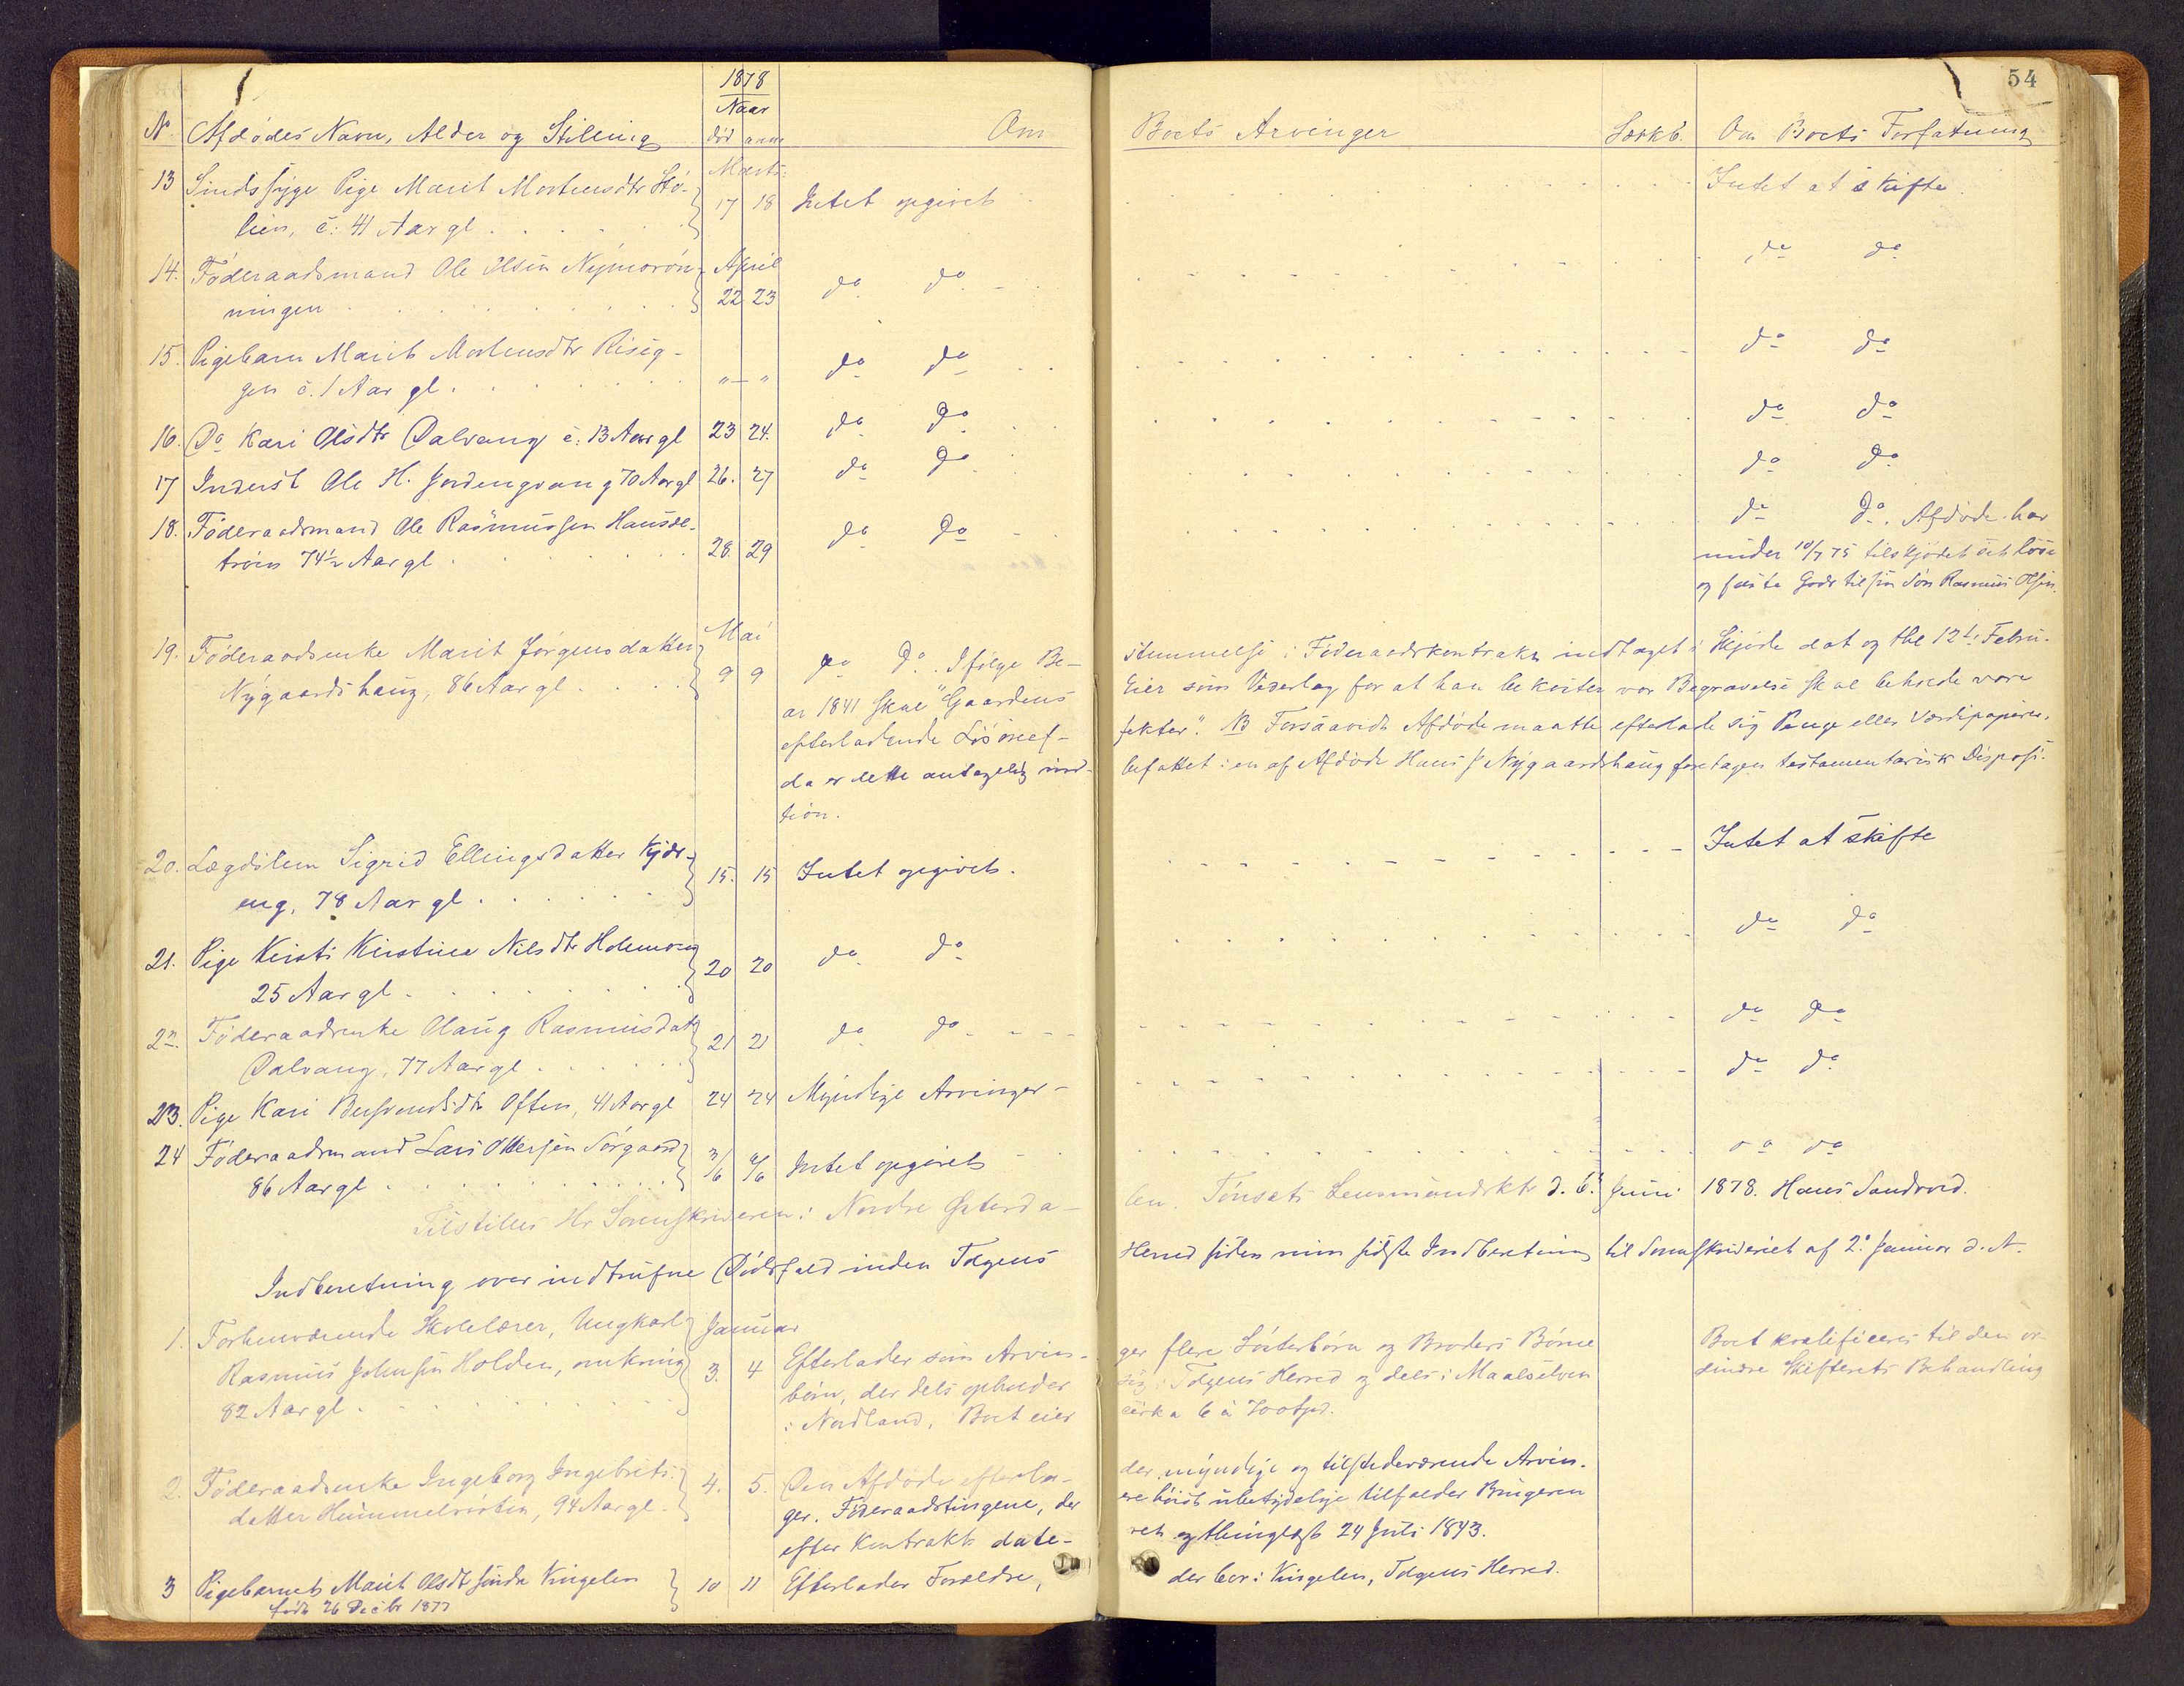 54
1878
Naar
No. Afdødes Navn, Alder og Stilling død anm Om Boets Arvinger Særkb. Om Boets Forfatning
Marts
13 Sindssyge Pige Marit Mortensdtr Stø-
lien, c: 41 Aar gl. 17 18 Intet opgivet Intet at skifte.
14. Føderaadsmand Ole Olsen Nymoròn- April
ningen 22 23 do do do do
15. Pigebarn Marit Mortensdtr Risig-
gen c. 1 Aar gl. " — " do do do do
16. Do Kari Olsdtr Dalvang c: 13 Aar gl 23 24. do do do do
17 Inderst Ole H. Jordengvang 70 Aar gl 26. 27 do do do do
18. Føderaadsmand Ole Rasmussen Hausæ-
trøen 74½ Aar gl. 28. 29 do do do do. Afdøde har
under 10/7 75 tilskjødet sit løse
og faste Gods til sin Søn Rasmus Olsen.
Mai
19. Føderaadsenke Marit Jørgensdatter
Nygaardshaug, 86 Aar gl. 9 9 do do. Ifølge Be- stemmelse i Føderaadskontrakt indtaget i Skjøde dat og thl 12te Febru-
ar 1841 skal "Gaardens Eier som Vederlag for at han bekoster vor Begravelse skal beholde vore
efterladende Løsøreef- fekter." NB Forsaavidt Afdøde maatte efterlade sig Penge eller Værdipapirer,
da er dette antagelig ind- befattet i en af Afdøde Hans J Nygaardshaug foretagen testamentarisk Disposi-
tion.
20. Lægdslem Sigrid Ellingsdatter Kjør-
eng, 78 Aar gl. 15. 15 Intet opgivet. Intet at skifte
21. Pige Kirsti Kirstine Nilsdtr Holmoen
25 Aar gl. 20 20 do do do do
22. Føderaadsenke Olaug Rasmusdat
Dalvang, 77 Aar gl. 21 21 do do do do
23. Pige Kari Bersvendsdtr Often, 41 Aar gl 24 24 Myndige Arvinger do do
24 Føderaadsmand Lars Ottersen Sørgaard
86 Aar gl. 3/6 4/6 Intet opgivet do do
Tilstilles Hr Sorenskriveren i Nordre Østerda- len. Tønsets Lensmandsktr d. 6. Juni 1878. Hans Sandvord.
Indberetning over indtrufne Dødsfald inden Tolgens Herred siden min sidste Indberetning til Sorenskriveriet af 2. Januar d. A.
1. Forhenværende Skolelærer, Ungkarl Januar
Rasmus Johnsen Holden, omkring 3. 4 Efterlader som Arvin- ger flere Søsterbørn og Broders Børne Boet kvalificeres til den or-
82 Aar gl. børn, der dels opholder sig i Tolgens Herred og dels i Maalselven dinære Skifterets Behandling
i Nordland. Boet eier cirka 6 à 700 Spd.
2. Føderaadsenke Ingeborg Ingebrits- 4. 5. Den Afdøde efterla- der myndige og tilstedeværende Arvin-
datter Hummelvolden, 94 Aar gl. ger. Føderaadstingene, der ere høist ubetydelige tilfalder Brugeren
efter Kontrakt date- ret og thinglæst 24 Juli 1843.
3 Pigebarnet Marit Olsdt søndre Vingelen 10 11 Efterlader Forældre, der bor i Vingelen, Tolgens Herred.
født 26 Decbr 1877